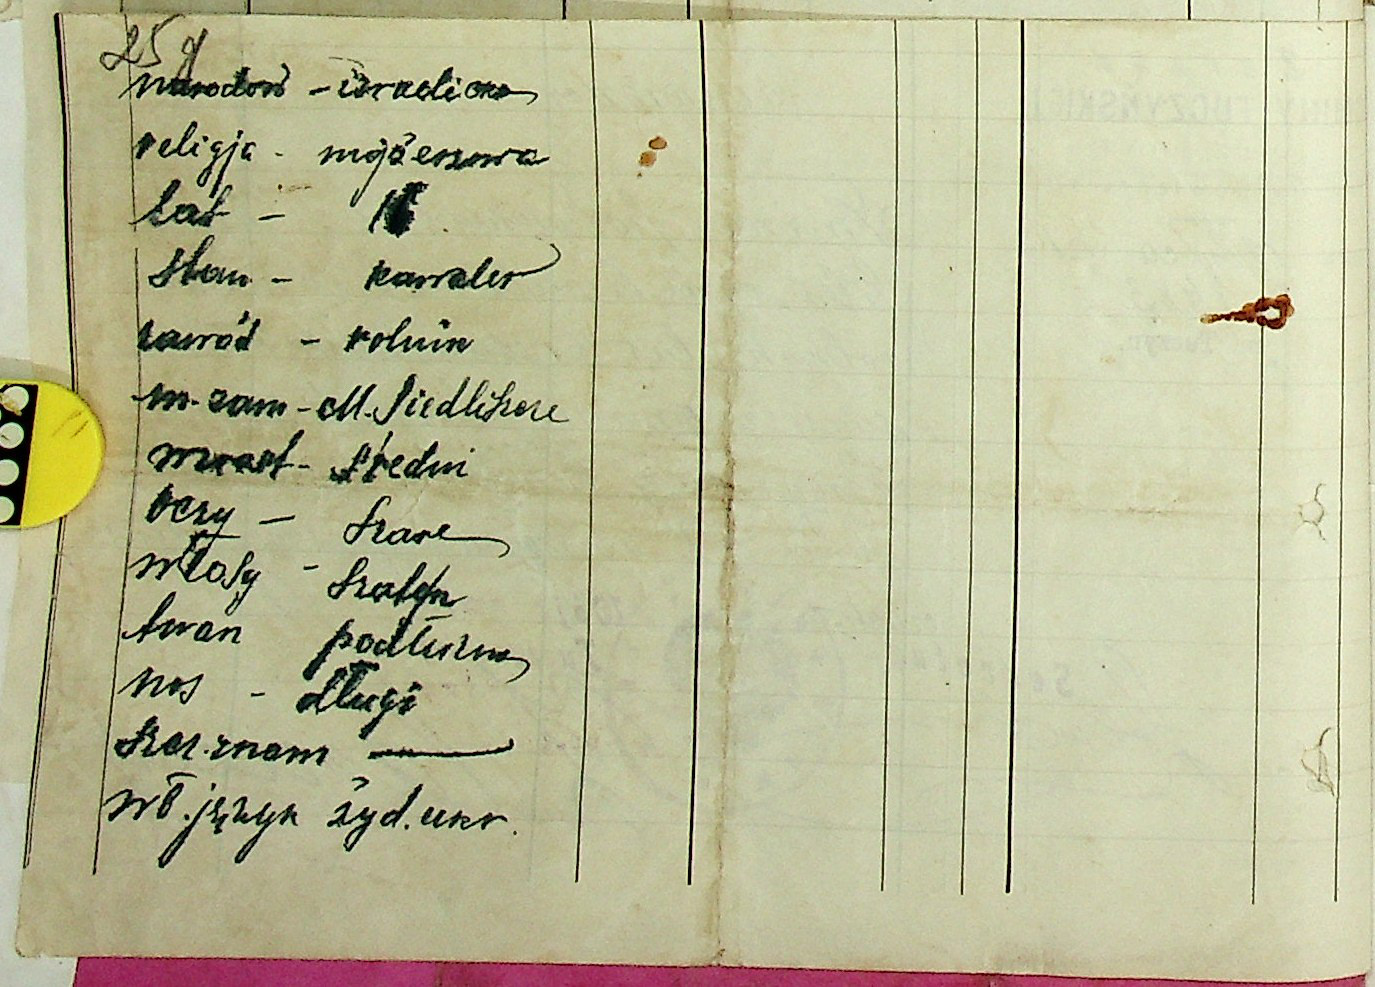 25
narodow - izraelicka
religja - mojżeszowa
lat -
stan - kawaler
zawód - rolnik
m. zam - M. Siedliszcze
wzrost - średni
oczy - szare
włosy - szatyn
twarz podłużna
nos - długi
szcz. znam —
wł. język żyd. ukr.